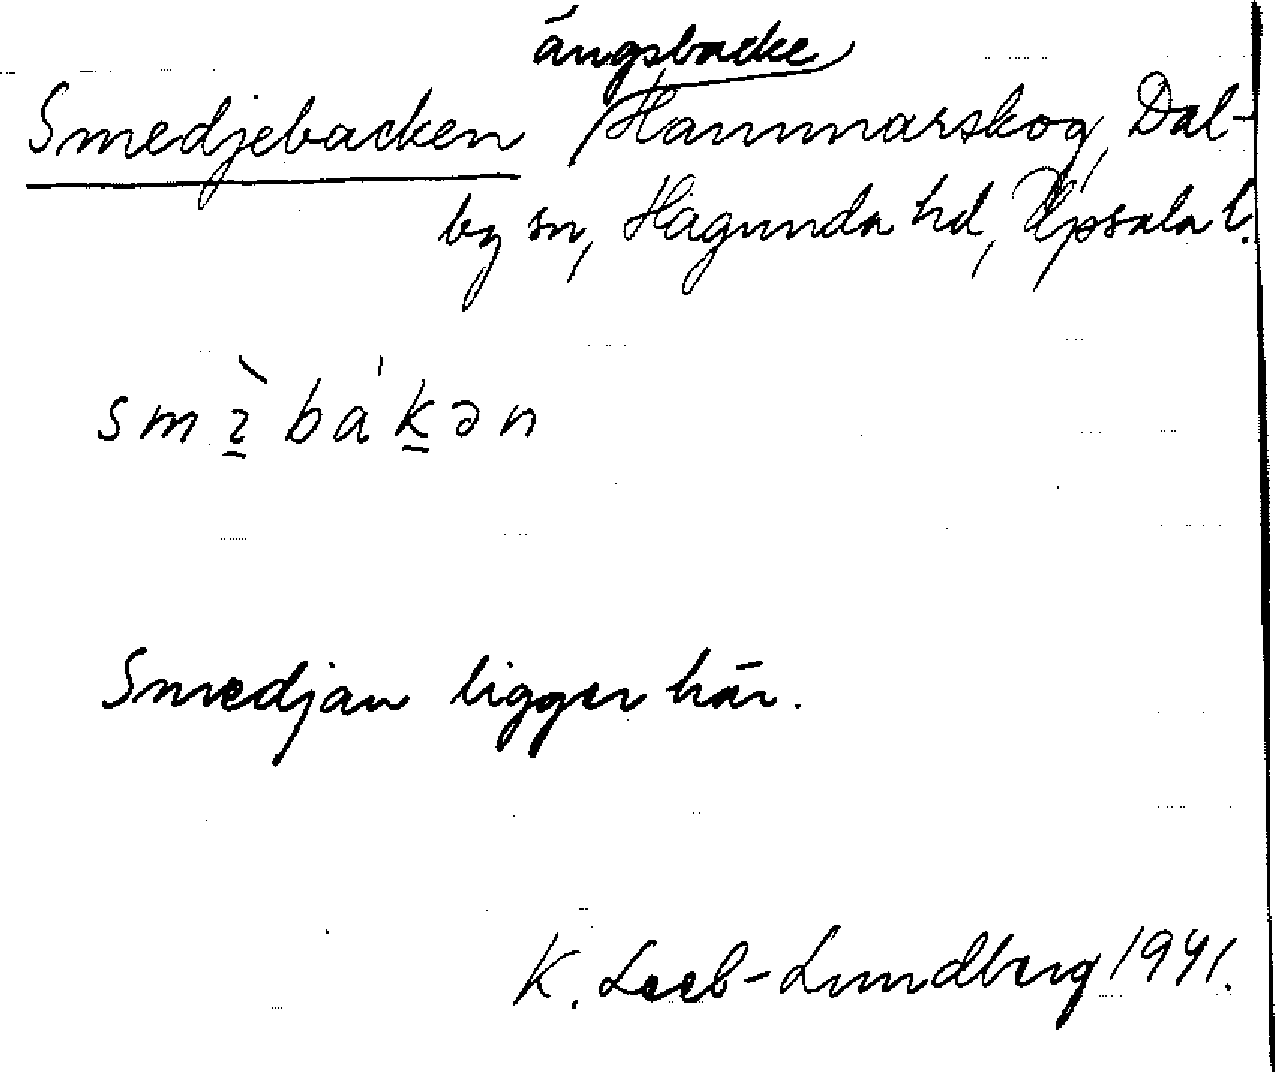 ängsbacke
Smedjebacken Hammarskog, Dal-
by sn, Hagunda hd, Upsala l.
Smedjan ligger här.
K. Leeb-Lundberg 1941.